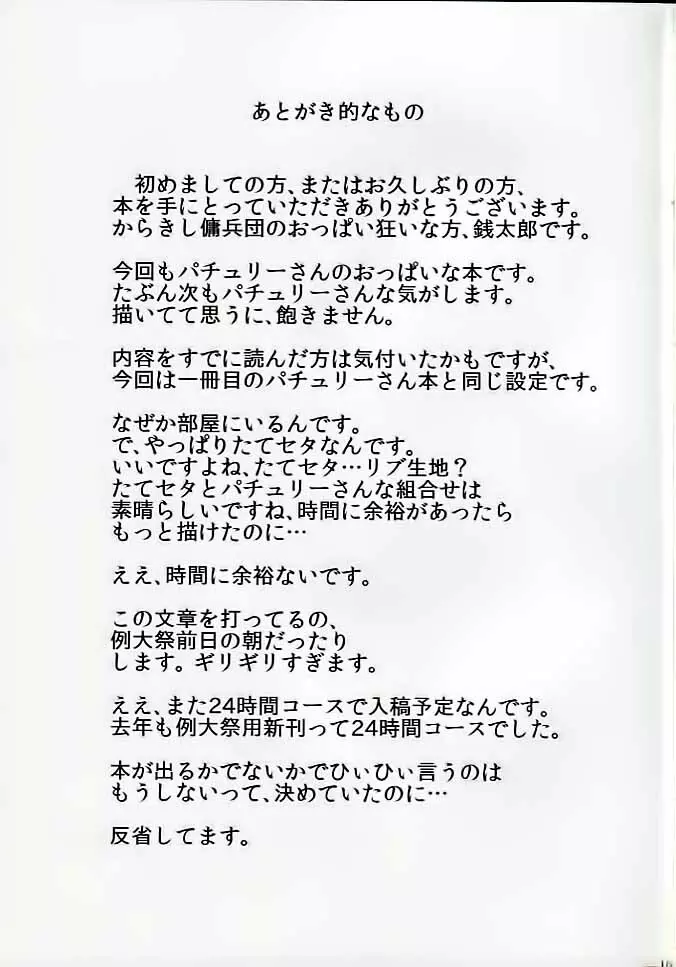 あとがき的なもの
初めましての方、またはお久しぶりの方、
本を手にとっていただきありがとうございます。
からきし傭兵団のおっぱい狂いな方、銭太郎です。
今回もパチュリーさんのおっぱいな本です。
たぶん次もパチュリーさんな気がします。
描いてて思うに、飽きません。
内容をすでに読んだ方は気付いたかもですが、
今回は一冊目のパチュリーさん本と同じ設定です。
なぜか部屋にいるんです。
で、やっぱりたてセタなんです。
いいですよね、たてセタ…リブ生地？
たてセタとパチュリーさんな組合せは
素晴らしいですね、時間に余裕があったら
もっと描けたのに…
ええ、時間に余裕ないです。
この文章を打ってるの、
例大祭前日の朝だったり
します。ギリギリすぎます。
ええ、また24時間コースで入稿予定なんです。
去年も例大祭用新刊って24時間コースでした。
本が出るかでないかでひぃひぃ言うのは
もうしないって、決めていたのに…
反省してます。